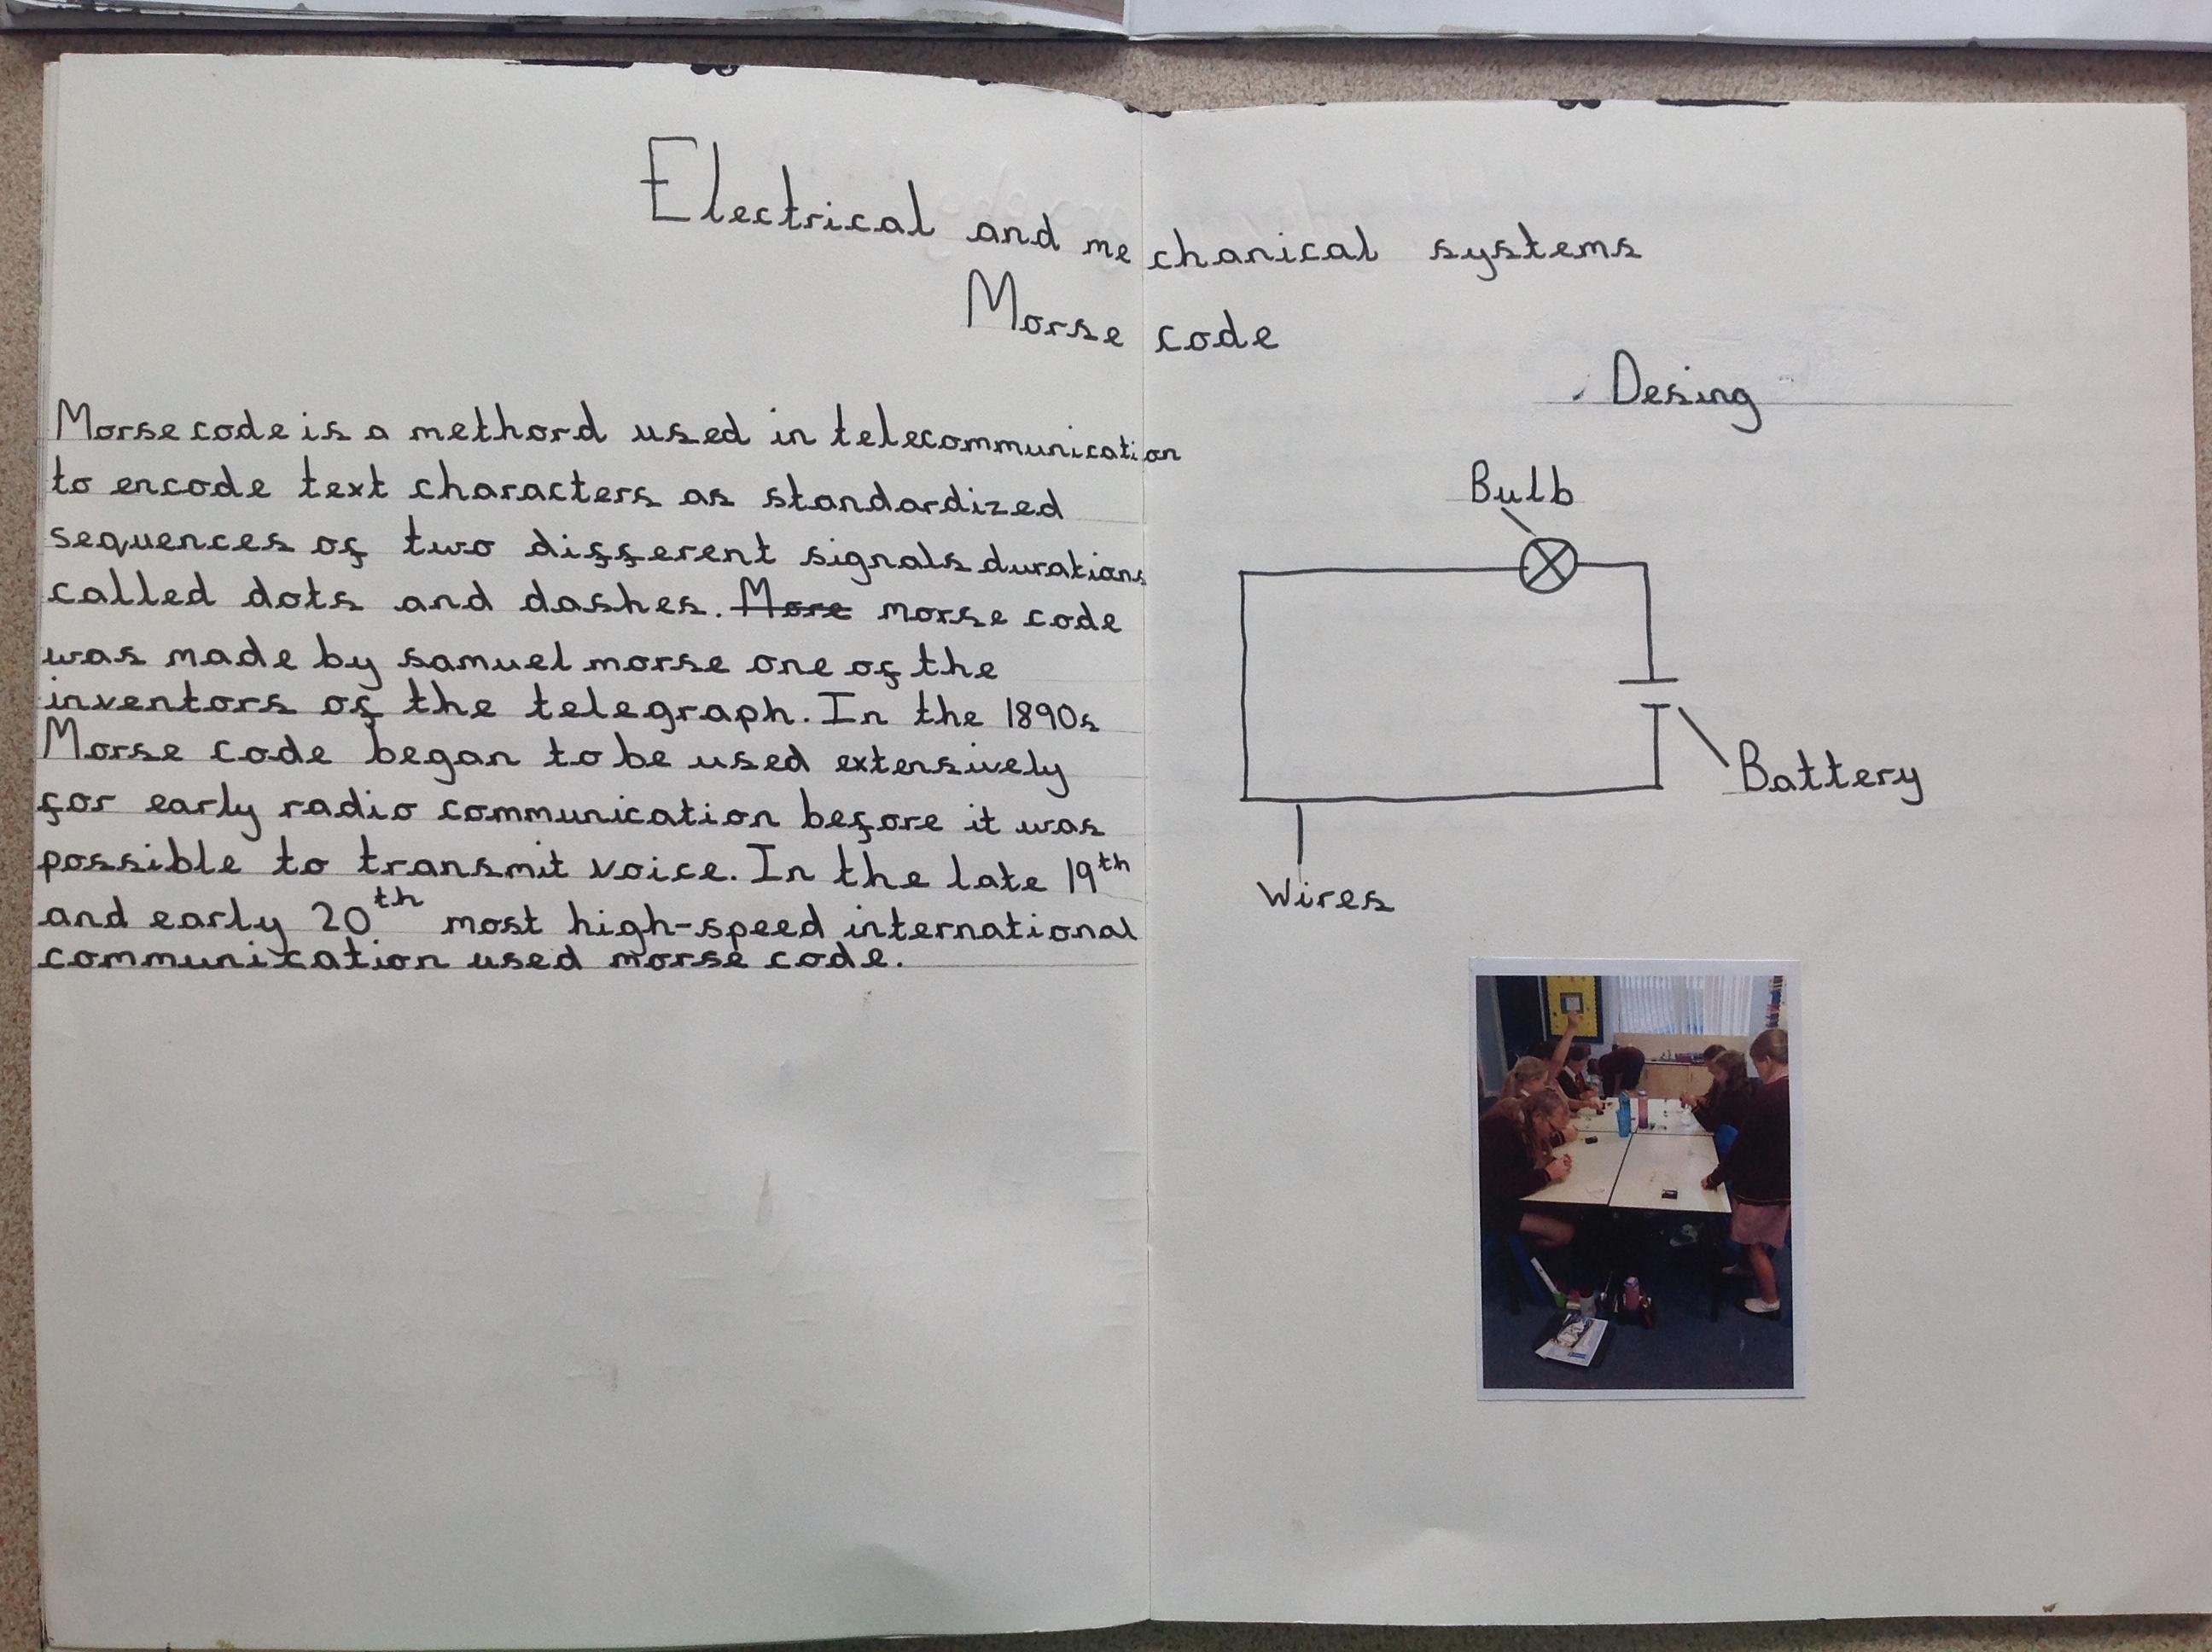 Electrical and mechanical systems
Morse code
Morse code is a methord used in telecommunication
to encode text characters as standardized
sequences of two different signals durations
called dots and dashes. More morse code
was made by samuel morse one of the
inventors of the telegraph. In the 1890s
Morse code began to be used extensively
for early radio communication before it was
possible to transmit voice. In the late 19th
and early 20th most high-speed international
communication used morse code.
Desing
Bulb
Battery
Wires